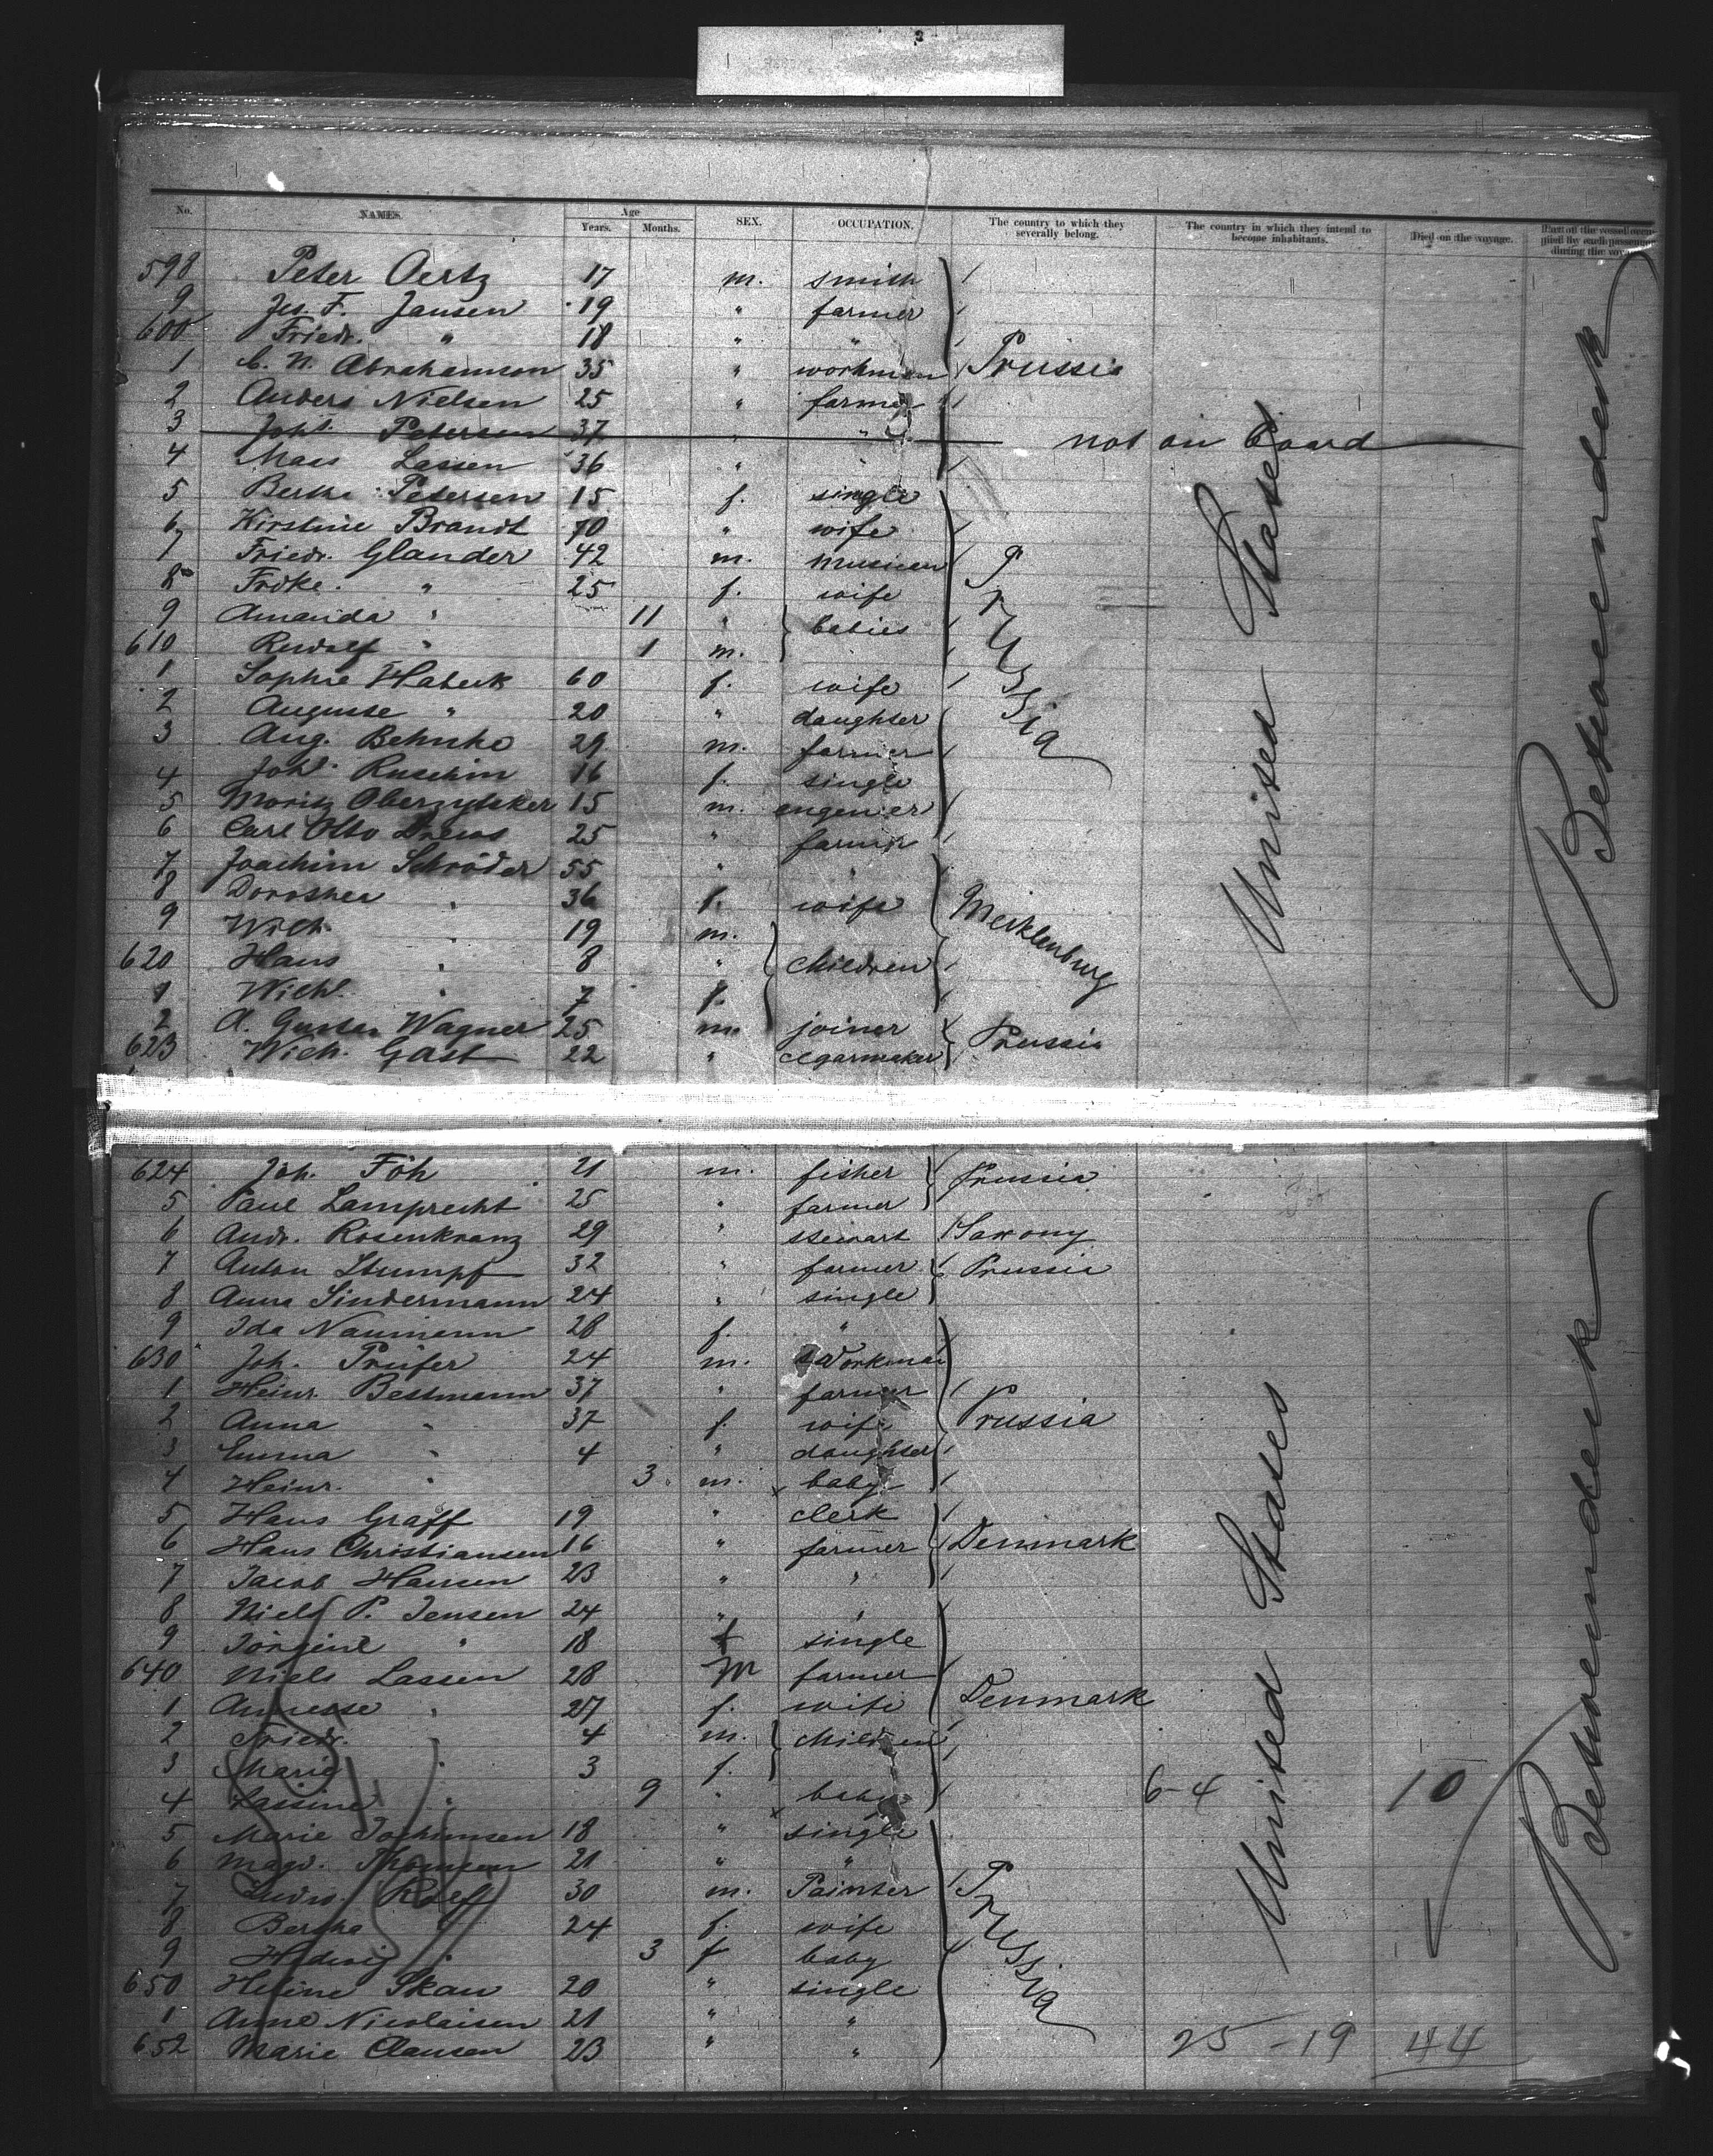 No. NAMES. Age Years. Months. SEX. OCCUPATION. The country to which they severally belong. The country in which they intend to become inhabitants. Died on the voyage. Part of the vessel occupied by each passenger during the voyage
598 Peter Oertz 17 m. smith
9 Jes. F. Jansen 19 " farmer
600 Friedr. " 18 " "
1 C. N. Abrahamson 35 " workman Prussia
2 Anders Nielsen 25 " farmer
3 Johs. Petersen 37 " " not on Board
4 Lassen 36 "
5 Petersen 15 f. single
6 Kirstine Brandt 70 " wife
7 Friedr. Glander 42 m. musicen Prussia
8 Frdke. " 25 f. wife
9 Amanda " 11 " babies
610 Rudolf " 1 m.
1 Sophie Habeck 60 f. wife
2 Auguste " 20 " daughter
3 Aug. Behnke 29 m. farmer
4 Joh. 16 f. single
5 Moritz 15 m. engenier
6 Carl Otto Drews 25 " farmer
7 Joachim Schröder 55 " "
8 Dorothea " 36 f. wife Mecklenburg
9 Wilh. " 19 m.
620 Hans " 8 " children
1 Wilh. " 7 f.
2 A. Gustav Wagner 25 m. joiner Prussia
623 Wilh. Gast 22 " cigarmaker
United States
Betweendeck
624 Joh. Föh 21 m. fisher Prussia
5 Paul Lamprecht 25 " farmer
6 Andr. Rosenkranz 29 " stewart Saxony
7 Anton Stumpf 32 " farmer Prussia
8 Anna Sindermann 24 " single
9 Ida Naumann 28 f. "
630 Joh. Prüfer 24 m. Workman
1 Heinr. Bestmann 37 " farmer
2 Anna " 37 f. wife Prussia
3 Emma " 4 " daughter
4 Heinr. " 3 m. baby
5 Hans Graff 19 " clerk
6 Hans Christiansen 16 " farmer Denmark
7 Jacob Hansen 23 " "
8 Niels P. Jensen 24 " "
9 Jörgine " 18 f single
640 Niels Lassen 28 M farmer
1 " 27 f. wife Denmark
2 Friedr. " 4 m. children
3 Marie " 3 f.
4 Lassine " 9 " baby 6-4 10
5 Marie Jochimsen 18 " single
6 Magd. Thomsen 21 " "
7 Ludw. Rolff 30 m. Painter Prussia
8 Bertha " 24 f. wife
9 Hedwig " 3 f baby
650 Helene Skau 20 " single
1 Anne Nicolaisen 21 " "
652 Marie Clausen 23 " " 25-19 44
United States
Betweendeck